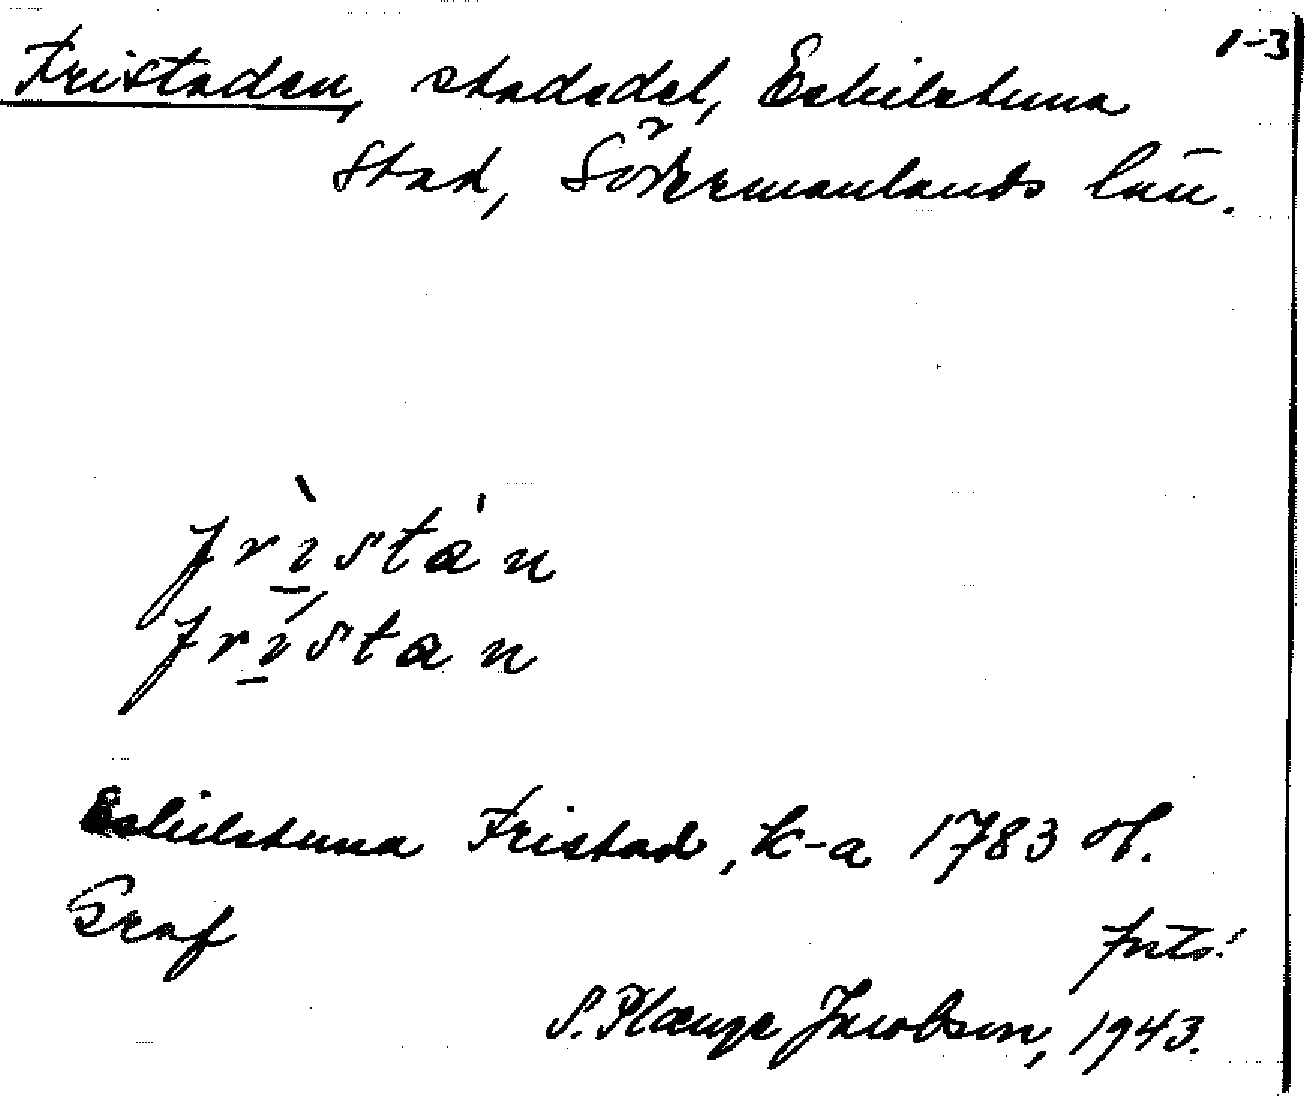 1-3
Fristaden, stadsdel, Eskilstuna
Stad, Södermanlands län.
frìstán
frístan
Eskilstuna Fristad, k-a 1783 Hf.
Graf
forts!
S. Plænge Jacobson, 1943.